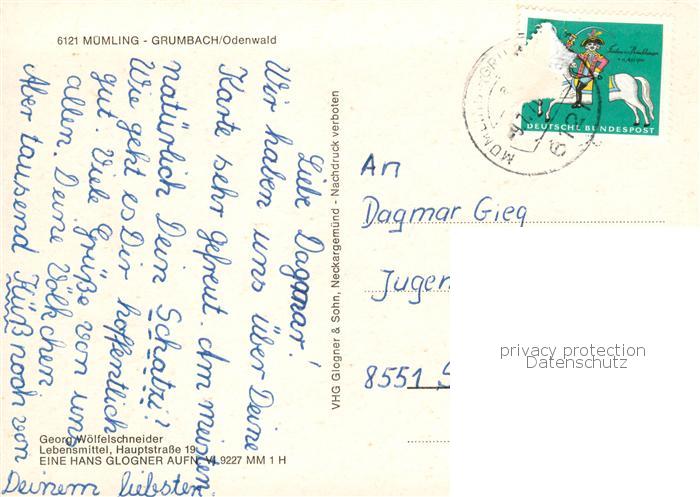 6121 MÜMLING - GRUMBACH/Odenwald
Liebe Dagmar!
Wir haben uns über Deine
Karte sehr gefreut. Am meisten
natürlich Dein Schatzi?
Wie geht es Dir hoffentlich
gut. Viele Grüße von uns
allen. Deine Völkchen
Aber tausend Küß noch von
Deinem liebsten.
Georg Wölfelschneider
Lebensmittel, Hauptstraße 19
EINE HANS GLOGNER AUFN. VI 9227 MM 1 H
VHG Glogner & Sohn, Neckargemünd - Nachdruck verboten
DEUTSCHE BUNDESPOST
An
Dagmar Gieg
Jugen
8551
privacy protection
Datenschutz